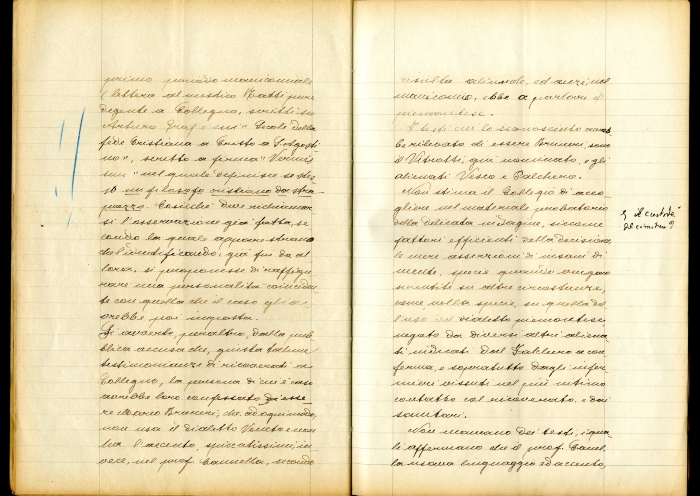 primo periodo manicomiale
(lettera al mistico Ratti pure
degente a Collegno, scritti su
Arturo Graf e sui "Scole della
fede Cristiana a Cristo a
scritto a firma
nel quale definisce se stes
so un filosofo cristiano da stra
pazzo. Cosiche deve richiamar
si l'osservazione già fatta, se
condo la quale appare strano
che l'identificando, già fin da al
lora, si proponesse di raffigu
rare una personalità coinciden
te con quella che il caso gli av
rebbe poi imposta.
Si avverte, peraltro, dalla pub
blica accusa che, giusta talune
testimonianze di ricoverati a
Collegno, la persona di cui è caso
avrebbe loro confessato di esse
re Mario Bruneri, che, ad ogni modo,
non usa il dialetto Veneto e non
ha l'accento, spiccatissimi in
vece, nel prof. Canella, secondo
risulta aliunde, ed anzi nel
manicomio, ebbe a parlare il
piemontese.
I testi cui lo sconosciuto avreb
be rivelato di essere Bruneri, sono
il Vitrotti, qui nominato, e gli
alienati Visco e Falchero.
Non stima il Collegio di acco
gliere nel materiale probatorio
della delicata indagine, siccome
fattori efficienti della decisione,
le mere asserzioni di insani di
mente, specie quando vengano
smentite su altre circostanze,
come nella specie, su quella del
l'uso del dialetto piemontese
negato da diversi altri aliena
ti indicati dal Falchero a con
ferma, e sopratutto dagli infer
mieri vissuti nel più intimo
contatto col ricoverato, e dai
sanitari.
Non mancano dei testi, i qua
li affermano che il prof. Canel
la usava linguaggio ed accento,
il custode
del cimitero